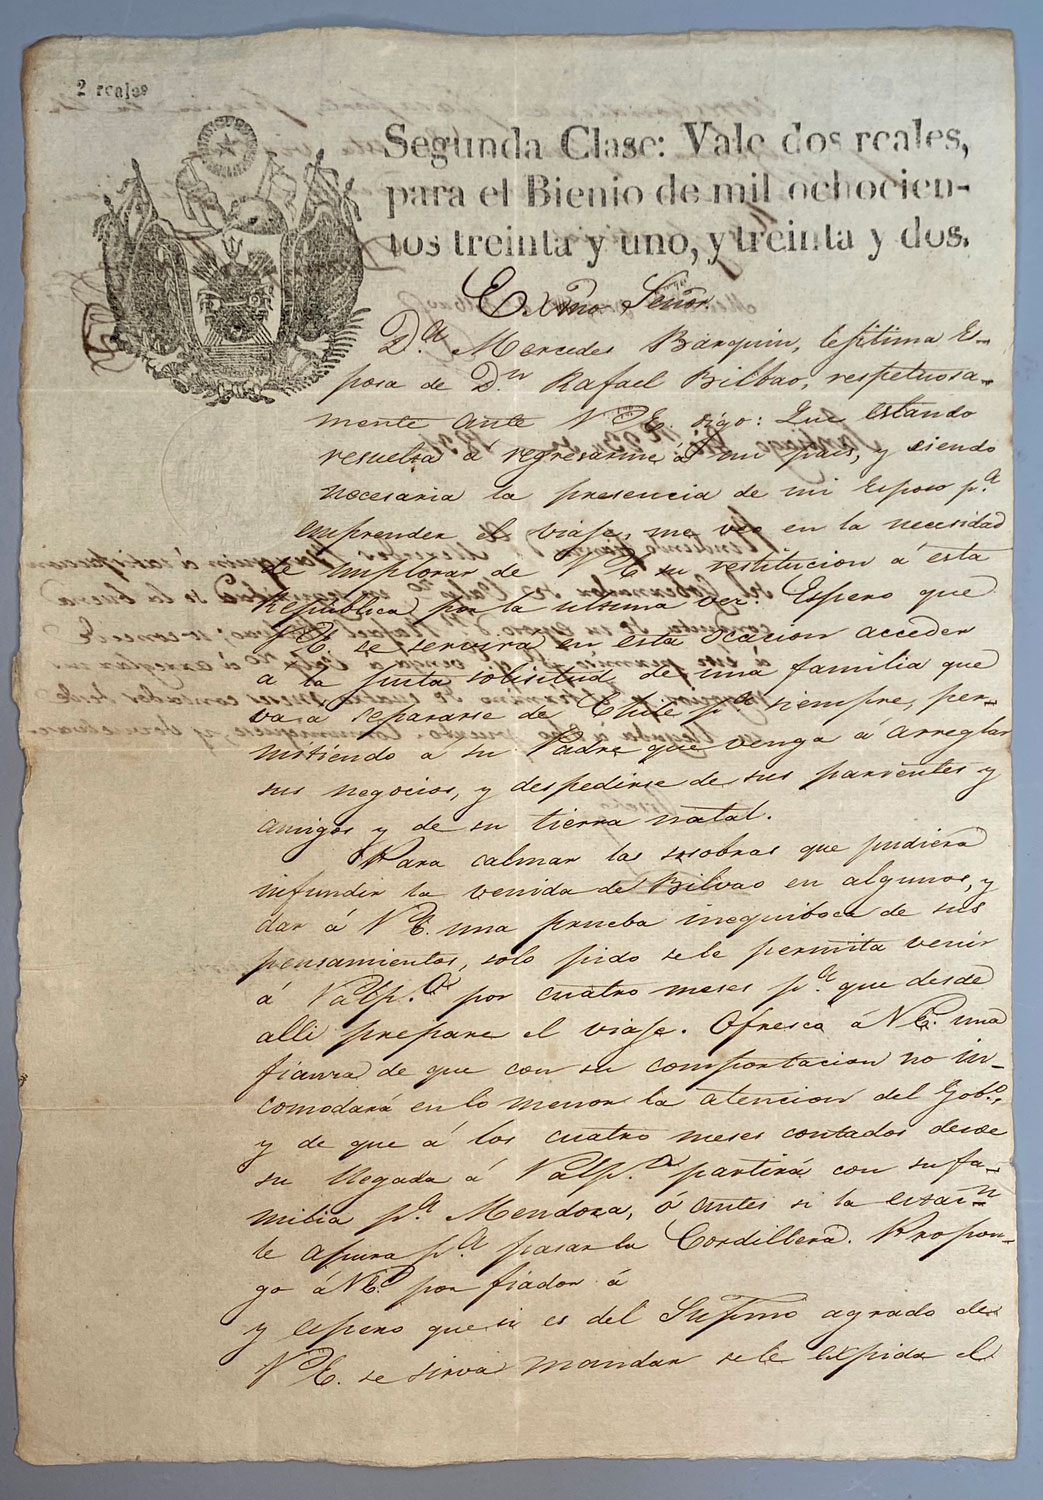 2 reales
Segunda Clase: Vale dos reales,
para el Bienio de mil ochocien-
tos treinta y uno, y treinta y dos.
Exmo. Señor.
D.a Mercedes Barquin, lejitima Es-
posa de D.n Rafael Bilbao, respetuosa-
mente ante V.E. digo: Que estando
resuelta á regresarme á mi pais, y siendo
necesaria la presencia de mi Esposo p.a
emprender el viaje, me veo en la necesidad
de implorar de V.E. su restitucion á esta
Republica por la ultima vez. Espero que
V.E. se servira en esta ocacion acceder
a la justa solisitud de una familia que
va a separarse de Chile p.a siempre, per-
mitiendo a su Padre que venga á arreglar
sus negocios, y despedirse de sus parientes y
amigos y de su tierra natal.
Para calmar las sosobras que pudiera
infundir la venida de Bilvao en algunos, y
dar á V.E. una prueba inequiboca de sus
pensamientos, solo pido se le permita venir
á Valp.o por cuatro meses p.a que desde
alli prepare el viaje. Ofresca á V.E. una
fianza de que con su comportacion no in-
comodará en lo menor la atencion del Gob.o,
y de que á los cuatro meses contados desde
su llegada á Valp.o partirá con su fa-
milia p.a Mendoza, ó antes si la estac.n
le apura p.a pasar la Cordillera. Propon-
go á V.E. por fiador á
y espero que si es del Supmo agrado de
V.E. se sirva mandar se le expida el